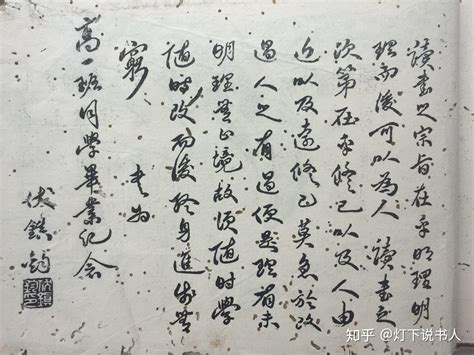 讀書之宗旨在乎明理明
理而後可以為人讀書之
次第在乎修己以及人由
近以及遠修己莫急於改
過人之有過便是理有未
明理無止境故須隨时學
隨時改而後終身進步無
窮 書為
高一班同學畢業紀念
伏鎮鈞
知乎 @灯下说书人